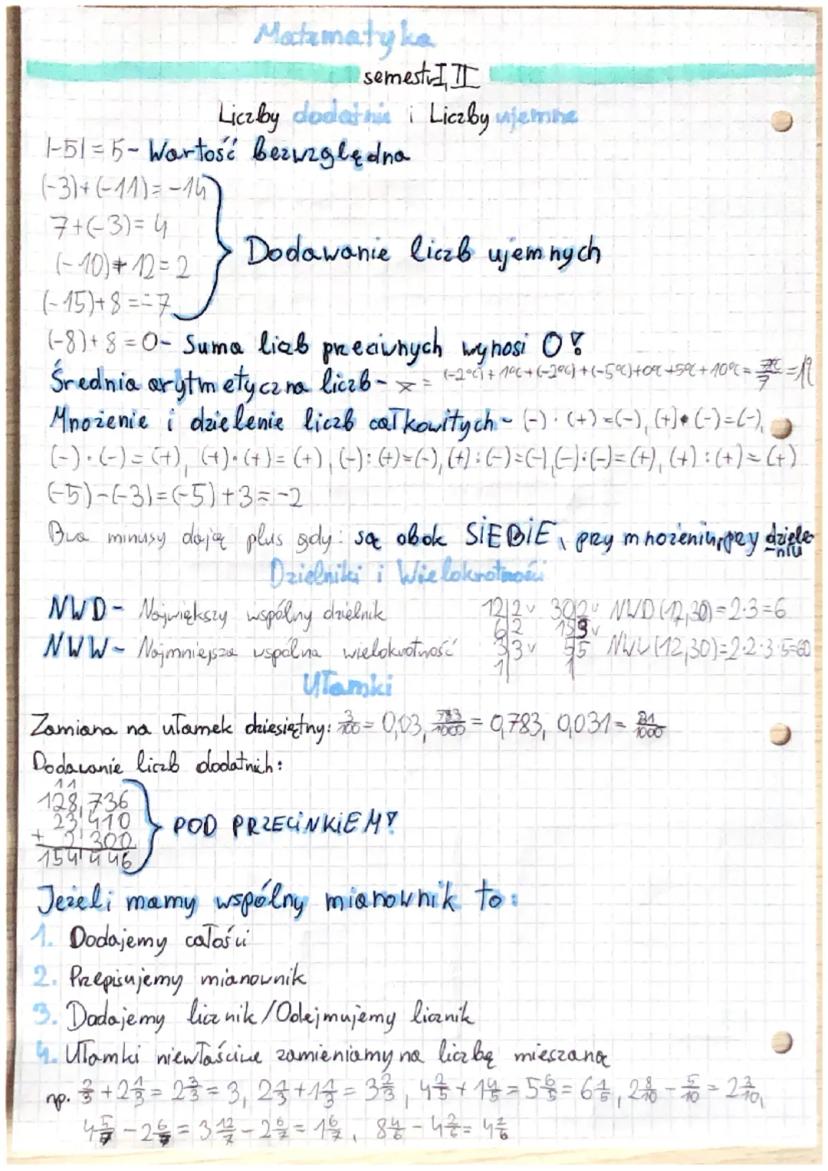 Matematyka
semestr I, II
Liczby dodatnie i Liczby ujemne
|-5| = 5 - Wartość bezwzględna
(-3)+(-11)= -14
7+(-3)= 4
(-10)+12=2
(-15)+8=-7
Dodawanie liczb ujemnych
(-8)+8=0- Suma liczb przeciwnych wynosi 0!
Średnia arytmetyczna liczb - x = (-2°C)+1°C+(-2°C)+(-5°C)+0°C+5°C+10°C= 7°C/7 =1°C
Mnożenie i dzielenie liczb całkowitych - (-)·(+)=(-), (+)·(-)=(-),
(-)·(-)=(+), (+)·(+)=(+), (-):(+)=(-), (+):(-)=(-), (-):(-)=(+), (+):(+)=(+)
(-5)-(-3)=(-5)+3=-2
Dwa minusy dają plus gdy: są obok SIEBIE, przy mnożeniu, przy dzieleniu
Dzielniki i Wielokrotności
NWD - Największy wspólny dzielnik 12|2 30|2 NWD(12,30)=2·3=6
6|2 15|3
NWW - Najmniejsza wspólna wielokrotność 3|3 5|5 NWW(12,30)=2·2·3·5=60
1| 1|
Ułamki
Zamiana na ułamek dziesiętny: 3/100 = 0,03, 783/1000 = 0,783, 0,031 = 31/1000
Dodawanie liczb dodatnich:
11
128,736
23,410
+ 2,300
154,446
POD PRZECINKIEM!
Jeżeli mamy wspólny mianownik to:
1. Dodajemy całości
2. Przepisujemy mianownik
3. Dodajemy licznik/Odejmujemy licznik
4. Ułamki niewłaściwe zamieniamy na liczbę mieszaną
np. 2/3 + 2 1/3 = 2 3/3 = 3, 2 1/3 + 1 1/3 = 3 2/3, 4 2/5 + 1 4/5 = 5 6/5 = 6 1/5, 2 8/10 - 5/10 = 2 3/10,
4 5/7 - 2 6/7 = 3 12/7 - 2 6/7 = 1 6/7, 8 4/6 - 4 2/6 = 4 2/6